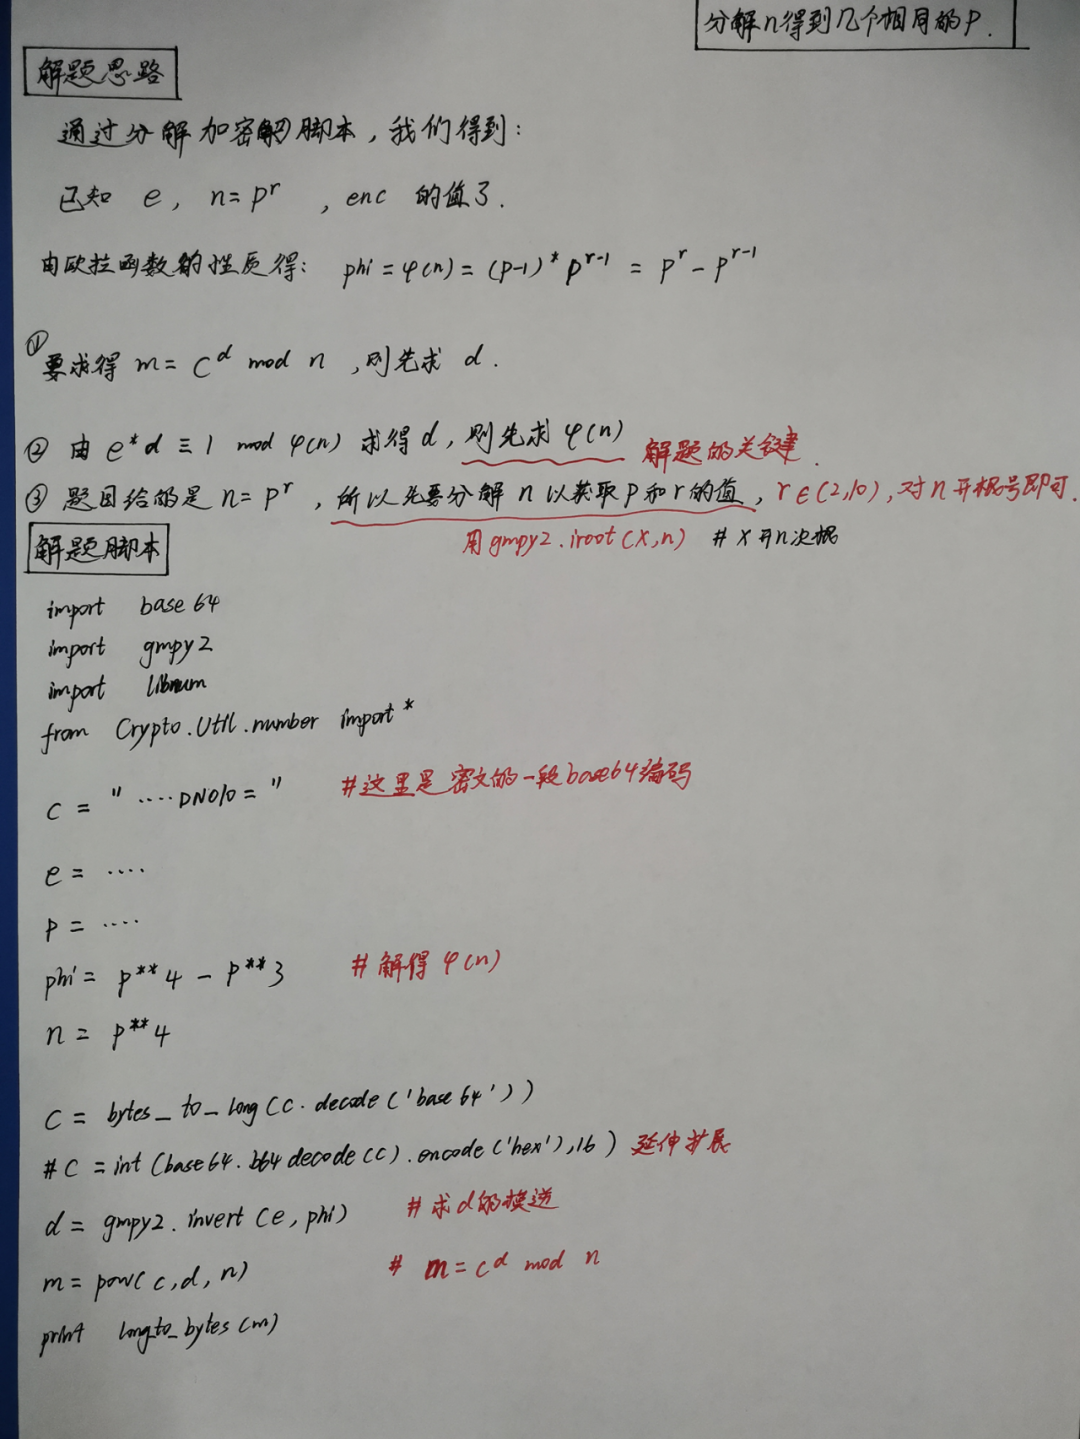 分解n得到几个相同的p.
解题思路
通过分解加密脚本，我们得到：
已知 e, n=p^r , enc 的值了.
由欧拉函数的性质得: phi = φ(n) = (p-1)*p^{r-1} = p^r - p^{r-1}
①
要求得 m = c^d mod n ,则先求 d.
② 由 e*d ≡ 1 mod φ(n) 求得d, 则先求 φ(n) 解题的关键.
③ 题目给的是 n=p^r , 所以先要分解 n 以获取 p和r的值, r∈(2,10), 对n开根号即可.
用gmpy2.iroot(x,n) # x开n次根
解题脚本
import base64
import gmpy2
import libnum
from Crypto.Util.number import *
c = "....DNO10="  #这里是密文的一段base64编码
e = ....
p = ....
phi = p**4 - p**3  # 解得 φ(n)
n = p**4
c = bytes_to_long(c.decode('base64'))
#c = int(base64.b64decode(c).encode('hex'),16) 延伸扩展
d = gmpy2.invert(e, phi)  # 求d的模逆
m = pow(c,d,n)  # m = c^d mod n
print long_to_bytes(m)